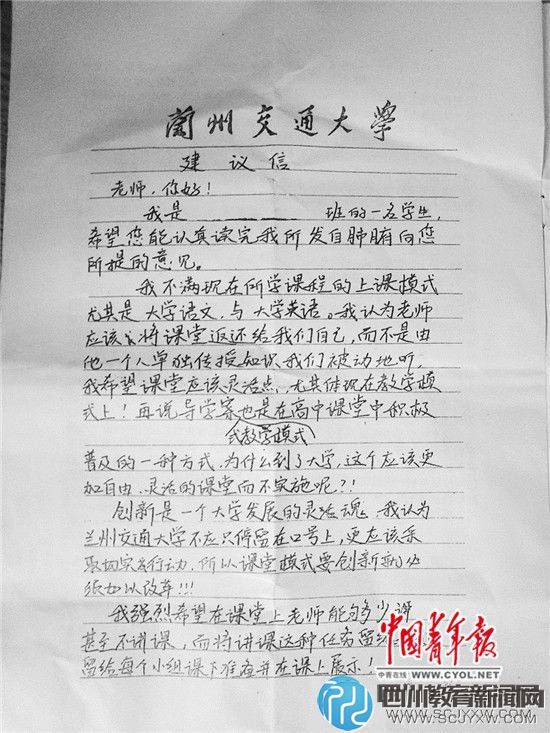 蘭州交通大學
建议信
老师，你好！
我是 班的一名学生，
希望您能认真读完我所发自肺腑向您
所提的意见。
我不满现在所学课程的上课模式
尤其是大学语文，与大学英语。我认为老师
应该将课堂返还给我们自己，而不是由
他一个人单独传授知识，我们被动地听
我希望课堂应该灵活点，尤其体现在教学模
式上！再说导学案也是在高中课堂中积极
式教学模式
普及的一种方式，为什么到了大学，这个应该更
加自由、灵活的课堂而不实施呢？！
创新是一个大学发展的灵活魂，我认为
兰州交通大学不应只停留在口号上，更应该采
取切实行动，所以课堂模式要创新就必
须加以改革！！！
我强烈希望在课堂上老师能够多少讲
甚至不讲课，而将讲课这种任务留给
留给每个小组课下准备并在课上展示！
中国青年报
中青在线 WWW.CYOL.NET
四川教育新闻网
WWW.SCJYXW.COM